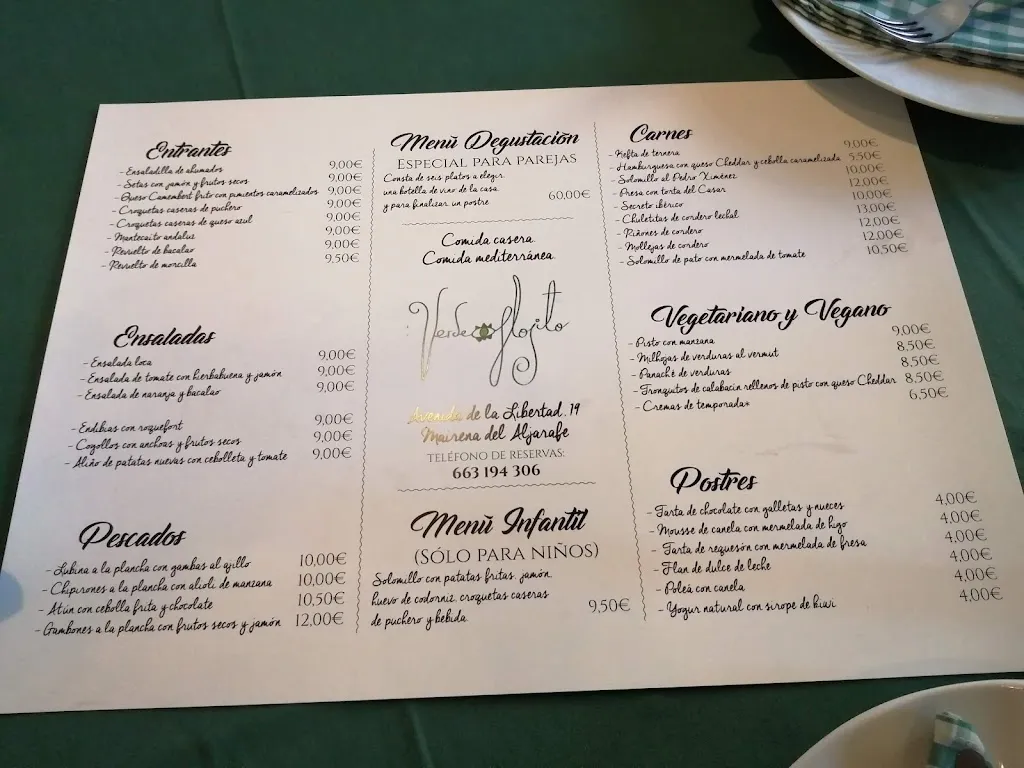 Entrantes
- Ensaladilla de ahumados 9,00€
- Setas con jamón y frutos secos 9,00€
- Queso Camembert frito con pimientos caramelizados 9,00€
- Croquetas caseras de puchero 9,00€
- Croquetas caseras de queso azul 9,00€
- Mantecaito andaluz 9,00€
- Revuelto de bacalao 9,00€
- Revuelto de morcilla 9,50€
Ensaladas
- Ensalada loca 9,00€
- Ensalada de tomate con hierbabuena y jamón 9,00€
- Ensalada de naranja y bacalao 9,00€
- Endibias con roquefort 9,00€
- Cogollos con anchoas y frutos secos 9,00€
- Aliño de patatas nuevas con cebolleta y tomate 9,00€
Pescados
- Lubina a la plancha con gambas al ajillo 10,00€
- Chipirones a la plancha con alioli de manzana 10,00€
- Atún con cebolla frita y chocolate 10,50€
- Gambones a la plancha con frutos secos y jamón 12,00€
Menù Degustación
ESPECIAL PARA PAREJAS
Consta de seis platos a elegir,
una botella de vino de la casa
y para finalizar un postre. 60,00€
Comida casera.
Comida mediterránea.
Verde Flojito
Avenida de la Libertad, 19
Mairena del Aljarafe
TELÉFONO DE RESERVAS:
663 194 306
Menù Infantil
(SÓLO PARA NIÑOS)
Solomillo con patatas fritas, jamón,
huevo de codorniz, croquetas caseras
de puchero y bebida. 9,50€
Carnes
- Kefta de ternera 9,00€
- Hamburguesa con queso Cheddar y cebolla caramelizada 5,50€
- Solomillo al Pedro Ximénez 10,00€
- Presa con torta del Casar 12,00€
- Secreto ibérico 10,00€
- Chuletitas de cordero lechal 13,00€
- Riñones de cordero 12,00€
- Mollejas de cordero 12,00€
- Solomillo de pato con mermelada de tomate 10,50€
Vegetariano y Vegano
- Pisto con manzana 9,00€
- Milhojas de verduras al vermut 8,50€
- Panaché de verduras 8,50€
- Tronquitos de calabacín rellenos de pisto con queso Cheddar 8,50€
- Cremas de temporada* 6,50€
Postres
- Tarta de chocolate con galletas y nueces 4,00€
- Mousse de canela con mermelada de higo 4,00€
- Tarta de requesón con mermelada de fresa 4,00€
- Flan de dulce de leche 4,00€
- Poleá con canela 4,00€
- Yogur natural con sirope de kiwi 4,00€